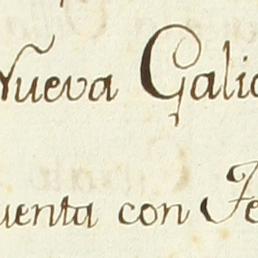 Nueva Galic
uenta con Fe